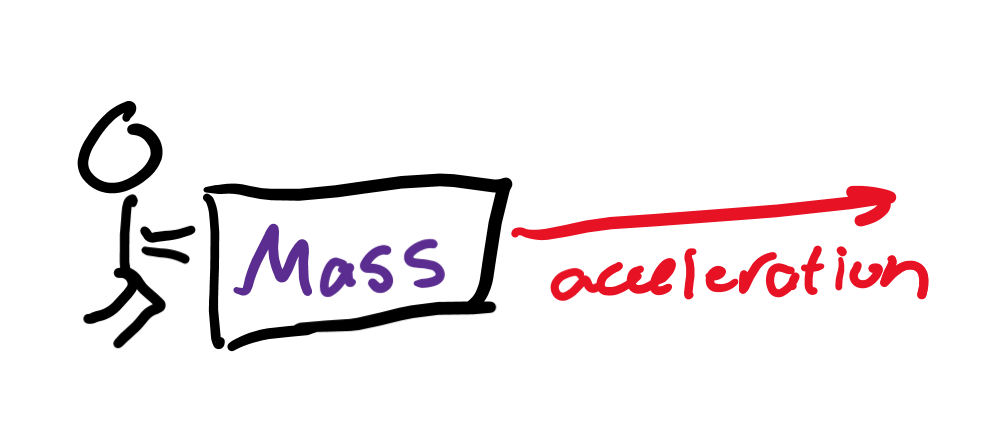 Mass
acceleration